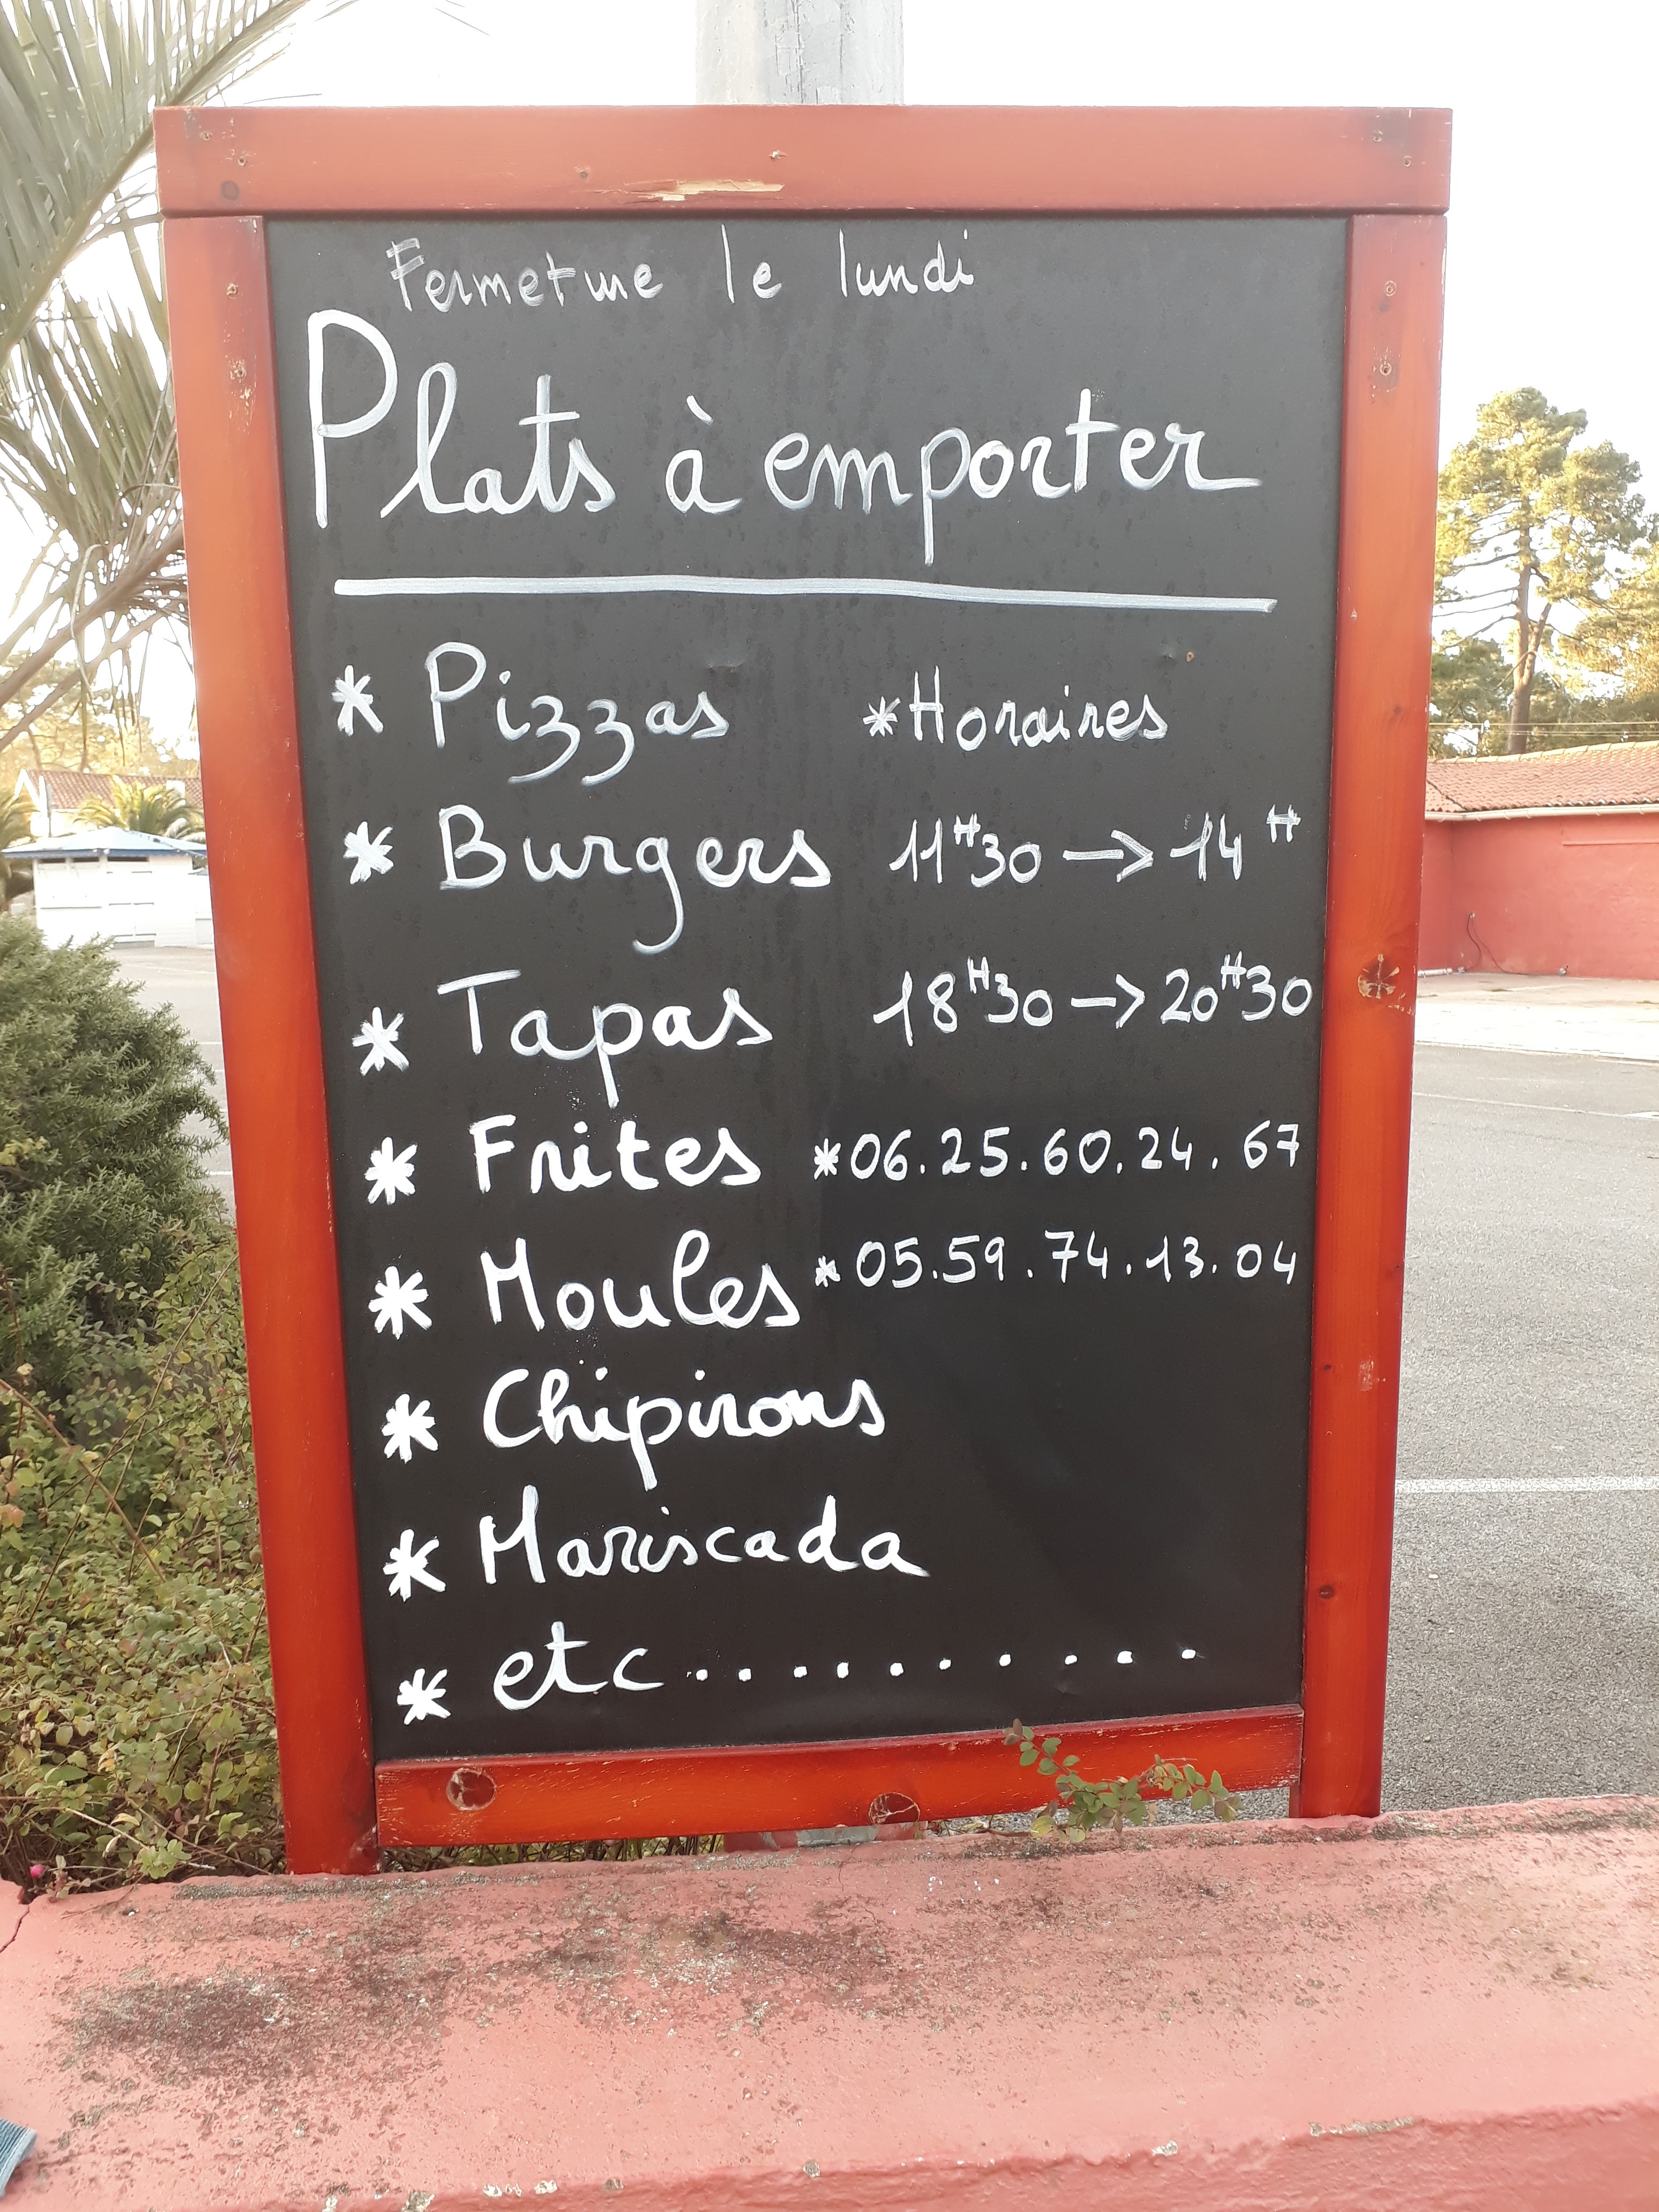 Fermeture le lundi
Plats à emporter
* Pizzas
* Burgers
* Tapas
* Frites
* Moules
* Chipirons
* Mariscada
* etc..........
*Horaires
11H30 -> 14H
18H30 -> 20H30
*06.25.60.24.67
*05.59.74.13.04